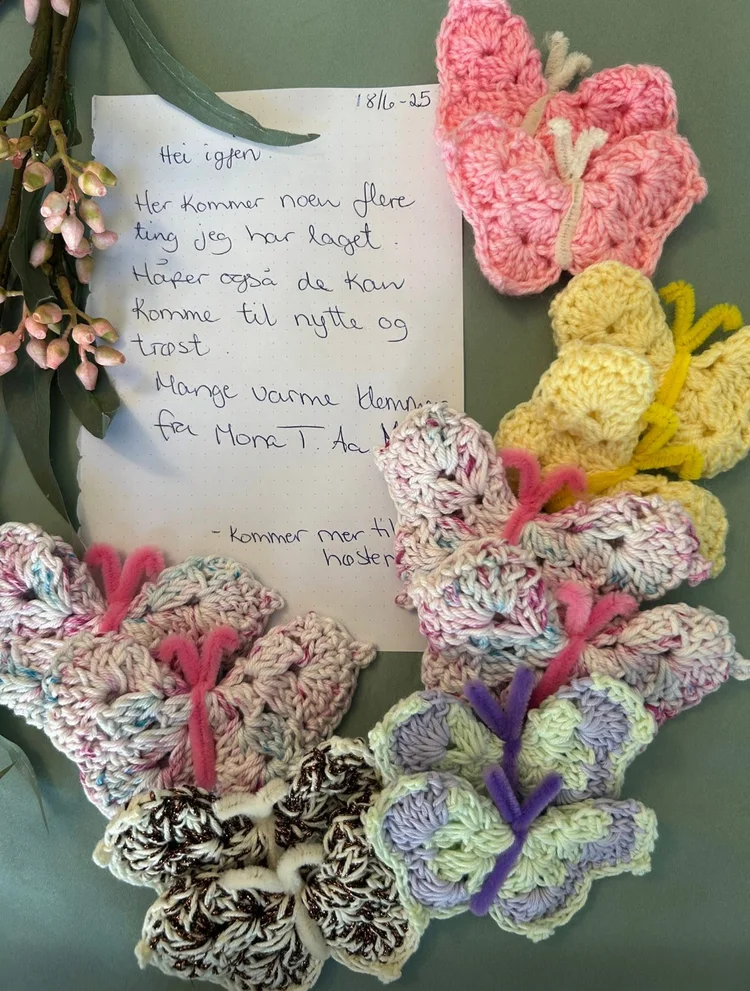 18/6-25
Hei igjen.
Her kommer noen flere
ting jeg har laget.
Håper også de kan
komme til nytte og
trøst.
Mange varme klemmer
fra Mona T. Aa
- Kommer mer til
høsten